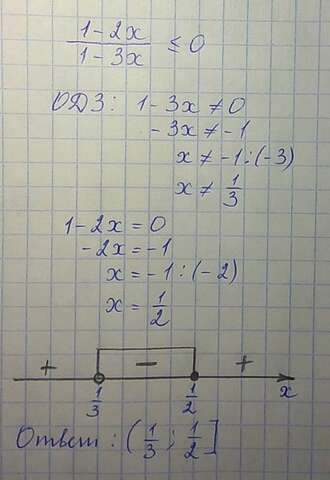 (1-2x)/(1-3x) ≤ 0
ОДЗ: 1-3x ≠ 0
-3x ≠ -1
x ≠ -1:(-3)
x ≠ 1/3
1-2x = 0
-2x = -1
x = -1:(-2)
x = 1/2
+ − +
1/3 1/2 x
Ответ: (1/3; 1/2]